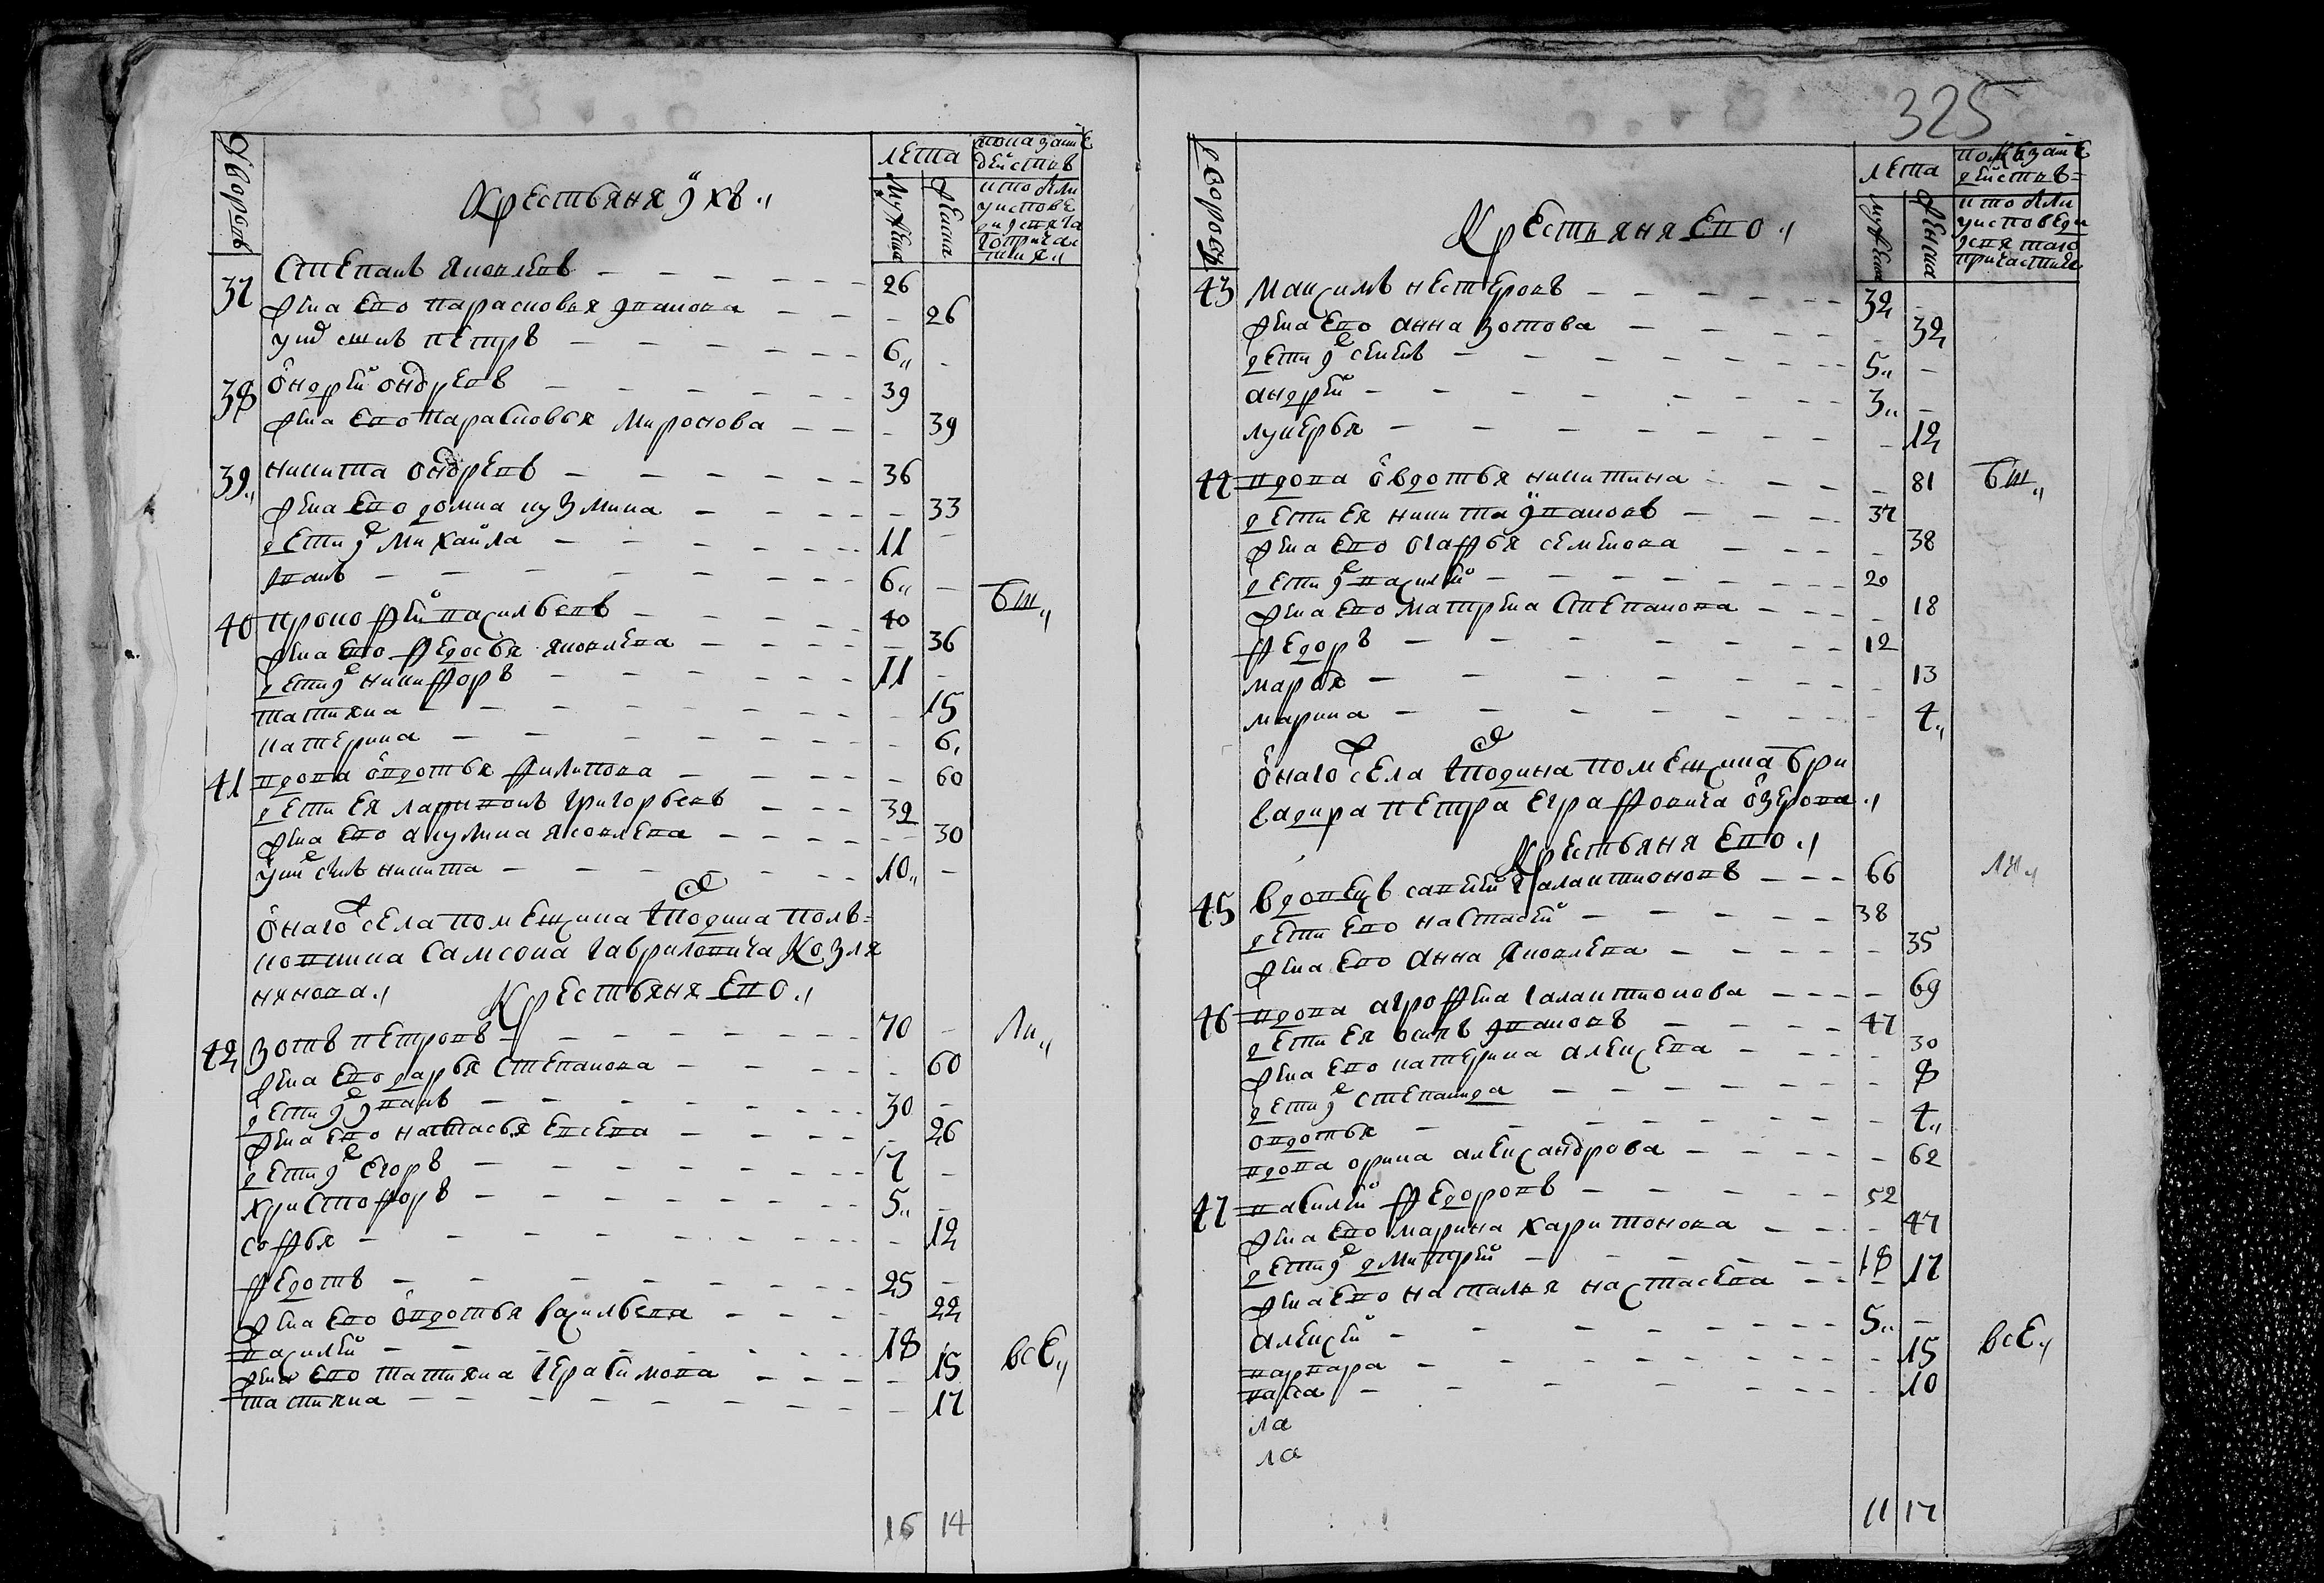 дворовъ
Крестьяня ихъ
лета
мужеска
женска
показание
действъ
кто были
у исповеди
и у святаго
причас
тия
37 Степанъ Яковлевъ 26
жена ево парасковья иванова 26
у них сынъ петръ 6
38 Ондрей ондревъ 39
жена ево парасковья миронова 39
39 никита ондревъ 36
жена ево домна кузмина 33
дети их михайла 11
иванъ 6
40 прокофей васильевъ 40 бш
жена ево федосья яковлева 36
дети их никифоръ 11
татияна 15
катерина 6
41 вдова овдотья филипова 60
дети ея ларивонъ григорьевъ 39
жена ево акулина яковлева 30
у них сынъ никита 10
Онаго ж села помещика господина полъ=
ковника самсона гавриловича Козля
нинова
Крестьяня ево
42 зотъ петровъ 70 ли
жена ево дарья степанова 60
дети их иванъ 30
жена ево настасья евсева 26
дети их егоръ 7
христофоръ 5
софья 12
федотъ 25
жена ево овдотья васильева 22
василей 18
жена ево татияна герасимова 15 все
татияна 17
16 14
325
дворовъ
Крестьяня ево
лета
мужеска
женска
показание
действъ=
кто были
у исповеди
и у святаго
причастия
43 максимъ нестеровъ 32
жена ево анна зотова 32
дети их семенъ 5
андрей 3
лукерья 12
44 вдова овдотья никитина 81 бш
дети ея никита ивановъ 37
жена ево огафья семенова 38
дети их василей 20
жена ево матрена степанова 18
федоръ 12
марья 13
марина 4
онаго ж села господина помещика бри
гадира петра еграфовича озерова
Крестьяня ево
45 вдовецъ савелей галактионовъ 66 ли
дети ево настасей 38
жена ево анна яковлева 35
46 вдова агрофена галактионова 69
дети ея осипъ ивановъ 47
жена ево катерина алексева 30
дети их степанида 8
овдотья 4
вдова орина александрова 62
47 василей федоровъ 52
жена ево марина харитонова 47
дети их дмитрей 18
жена ево наталья настасева 17
алексей 5
варвара 15 все
васса 10
ла
ла
11 17